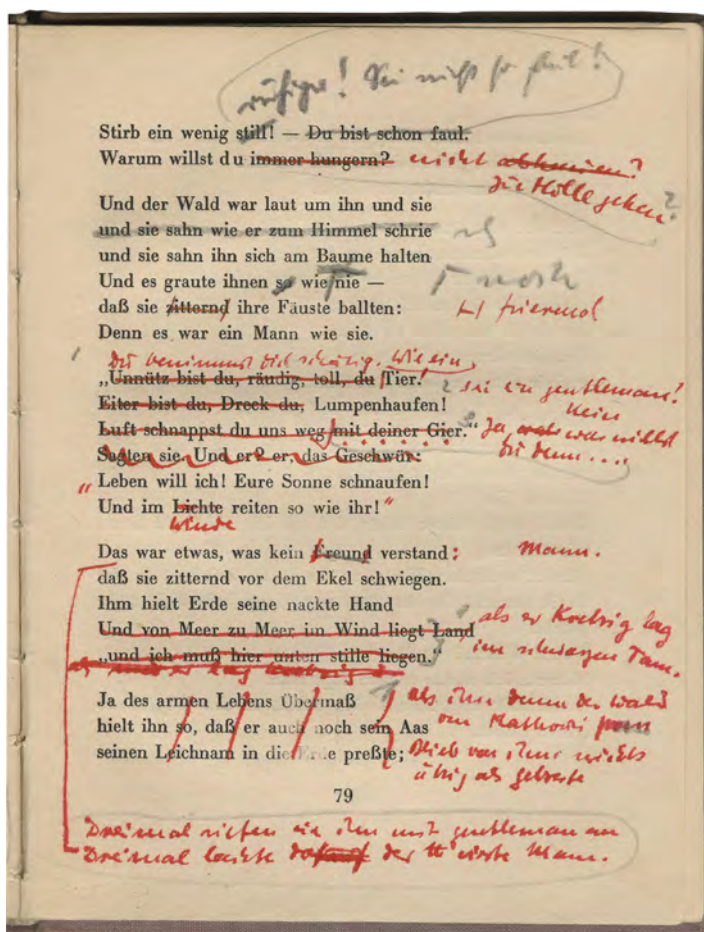 ruhiger! Sei nicht so faul!
Stirb ein wenig still! — Du bist schon faul.
Warum willst du immer hungern? nicht
zur Hölle gehen?
Und der Wald war laut um ihn und sie
und sie sahn wie er zum Himmel schrie
und sie sahn ihn sich am Baume halten
Und es graute ihnen so wie nie — noch
daß sie zitternd ihre Fäuste ballten:
Denn es war ein Mann wie sie.
Du benimmst dich schäbig. Wie ein
„Unnütz bist du, räudig, toll, du Tier! sei ein gentleman!
Eiter bist du, Dreck du, Lumpenhaufen! Nein
Luft schnappst du uns weg mit deiner Gier." Ja was willst
Sagten sie. Und er? er, das Geschwür: du denn....
„Leben will ich! Eure Sonne schnaufen!
Und im Lichte reiten so wie ihr!"
Winde
Das war etwas, was kein Freund verstand: Mann.
daß sie zitternd vor dem Ekel schwiegen.
Ihm hielt Erde seine nackte Hand
als er lag
Und von Meer zu Meer im Wind liegt Land
im schwarzen Tann.
„und ich muß hier unten stille liegen."
Ja des armen Lebens Übermaß als ihm denn der Wald
hielt ihn so, daß er auch noch sein Aas von
seinen Leichnam in die Erde preßte; Blieb von ihm nichts
übrig als
79
Dreimal riefen sie ihn mit gentleman an
Dreimal lachte der Mann.